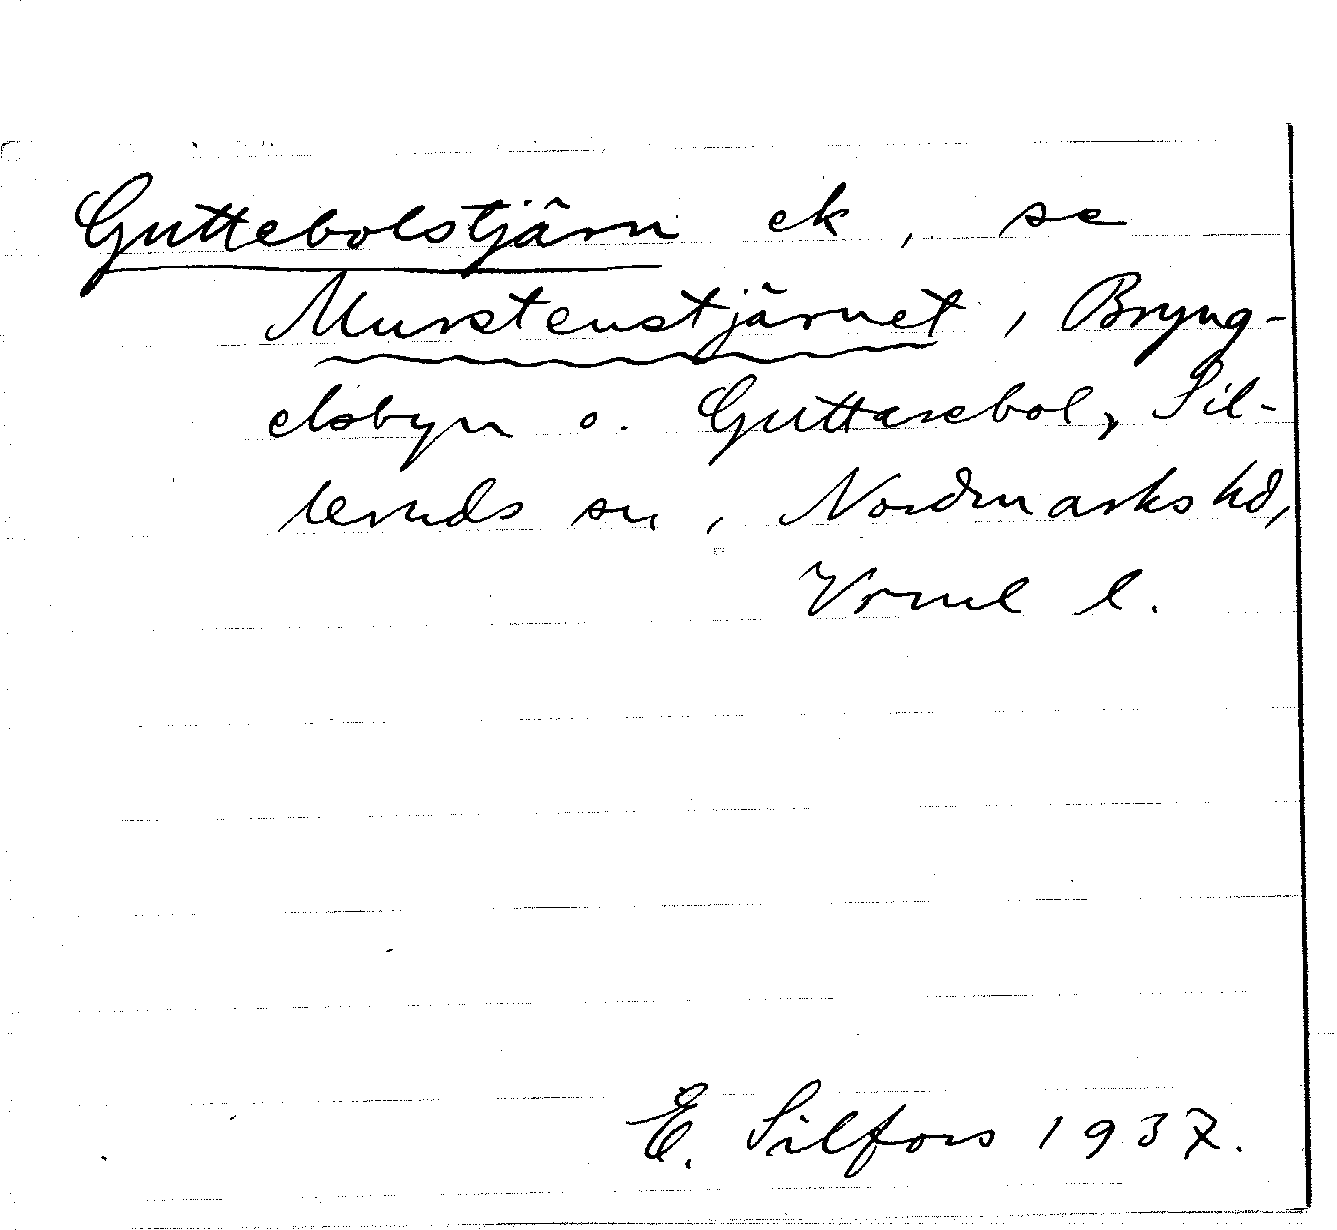 Guttebolstjärn ek, se
Murstenstjärnet, Bryng-
elsbyn o. Guttasebol, Sil-
leruds sn, Nordmarks hd,
Vrml l.
E. Silfors 1937.